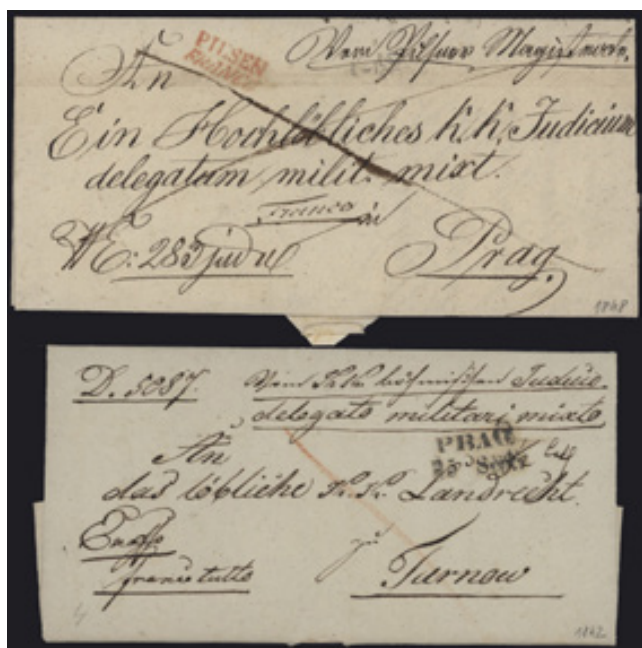 PILSEN
FRANCO
Vom Pilsner Magistrate.
An
Ein Hochlöbliches k: k: Judicium
delegatum milit. mixt.
Franco
in
Prag.
1848
D. 5087.
Vom k.k. böhmischen Judicio
delegato militari mixto
PRAG
An
das löbliche K. K. Landrecht.
zu
franco tutto
Tarnow
1842